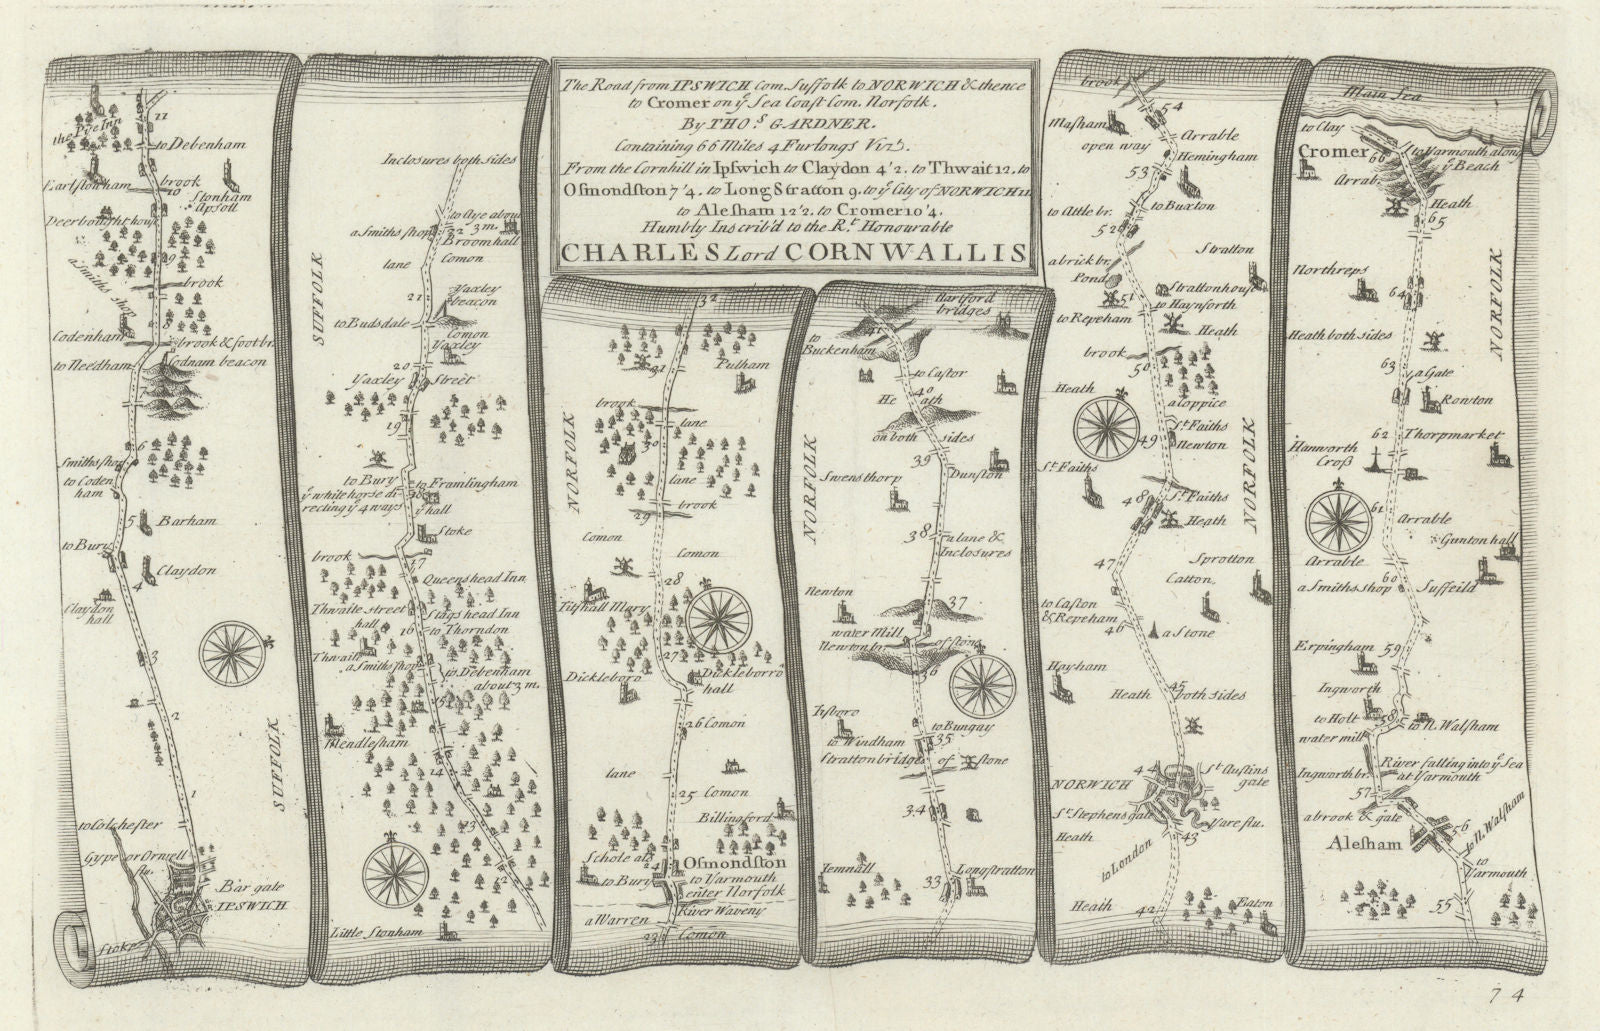 The Road from IPSWICH Com. Suffolk to NORWICH & thence
to Cromer on yᵉ Sea Coast Com. Norfolk.
By THOˢ. GARDNER.
Containing 66 Miles 4 Furlongs Vizᵗ.
From the Cornhill in Ipswich to Claydon 4'2. to Thwait 12. to
Osmondston 7'4. to Long Stratton 9. to yᵉ City of NORWICH 11.
to Alesham 12'2. to Cromer 10'4.
Humbly Inscrib'd to the Rᵗ. Honourable
CHARLES Lord CORNWALLIS
11
the Pye Inn
to Debenham
Earlstonham
brook
10
Stonham
Apsoll
Deerbought house
9
a Smiths shop
brook
8
Codenham
brook & foot br.
to Needham
Codnam beacon
7
6
Smiths shop
to Coden
ham
5
Barham
to Bury
Claydon
4
Claydon
hall
3
2
SUFFOLK
1
to Colchester
Gype or Orwell
flu.
Bar gate
IPSWICH
Stoke
Inclosures both sides
to Aye about
3 m.
a Smiths shop
22
Broomhall
Comon
lane
SUFFOLK
21
Yaxley
beacon
to Budsdale
Comon
Yaxley
20
Yaxley
Street
19
to Bury
to Framlingham
yᵉ white horse di
recting yᵉ 4 ways
18
yᵉ hall
Stoke
brook
17
Queenshead Inn
Thwaite street
hall
Stagshead Inn
16
to Thorndon
Thwaite
a Smiths shop
to Debenham
about 3 m.
15
Mendlesham
14
13
12
Little Stonham
32
31
Pulham
brook
lane
NORFOLK
30
lane
29
brook
Comon
Comon
28
Titshall Mary
27
Dickleboro
Dickleborro
hall
26 Comon
lane
25
Comon
Billingford
Schole als
24
Osmondston
to Bury
to Yarmouth
enter Norfolk
River Waveny
a Warren
23
Comon
Hartford
bridges
41
to
Buckenham
to Castor
40
Heath
on both sides
NORFOLK
39
Swensthorp
Dunston
38
a lane &
Inclosures
Newton
37
water Mill
Newton br.
of stone
36
Tasboro
to Bungay
to Windham
35
Stratton bridge
of stone
34
Jemnall
33
Longstratton
brook
54
Masham
open way
Arrable
Hemingham
53
to Buxton
to Attle br.
52
Stratton
a brick br.
Pond
51
Strattonhouse
to Haynforth
to Repeham
Heath
brook
50
Heath
a loppice
Sᵗ. Faiths
49
Newton
NORFOLK
Sᵗ. Faiths
48
Sᵗ. Faiths
Heath
47
Sprotton
Catton
to Caston
& Repeham
46
a Stone
Hayham
45
Heath both sides
44
NORWICH
Sᵗ. Austins
gate
Sᵗ. Stephens gate
Yare flu.
43
Heath
to London
Heath
42
Eaton
Main Sea
to Clay
Cromer
66
to Yarmouth along
yᵉ Beach
Arrab.
Heath
65
NORFOLK
Northreps
64
Heath both sides
63
a Gate
Rowton
62
Thorpmarket
Hanworth
Cross
61
Arrable
Gunton hall
Arrable
a Smiths shop
60
Suffeild
59
Erpingham
Ingworth
to Holt
58
to N. Walsham
water mill
River falling into yᵉ Sea
at Yarmouth
Ingworth br.
57
a brook & gate
56
Alesham
to N. Walsham
to
Yarmouth
55
74